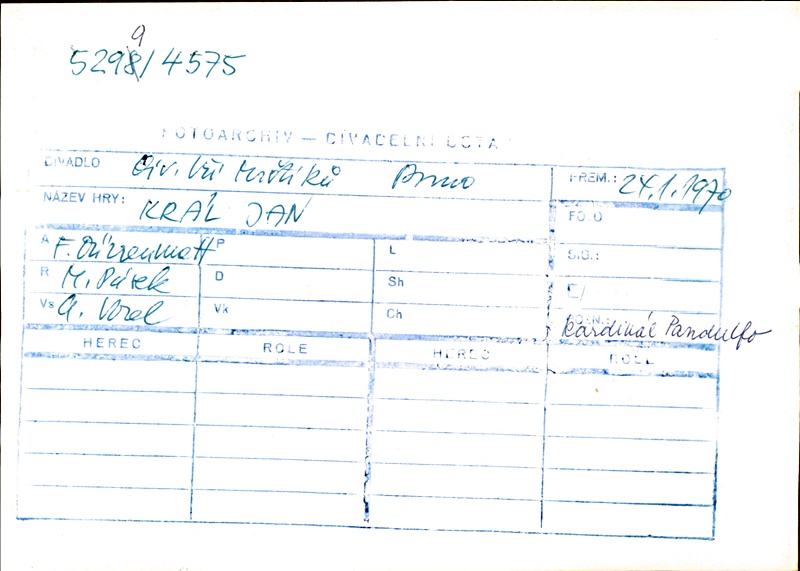 9
5298/4575
FOTOARCHIV — DIVADELNÍ ÚSTAV
DIVADLO Div. bří Mrštíků Brno PREM.: 24.1.1970
NÁZEV HRY: KRÁL JAN FOTO
A F. Dürrenmatt P L SIG.:
R M. Pásek D Sh Č/
Vs A. Vorel Vk Ch Kardinál Pandulfo
HEREC ROLE HEREC ROLE